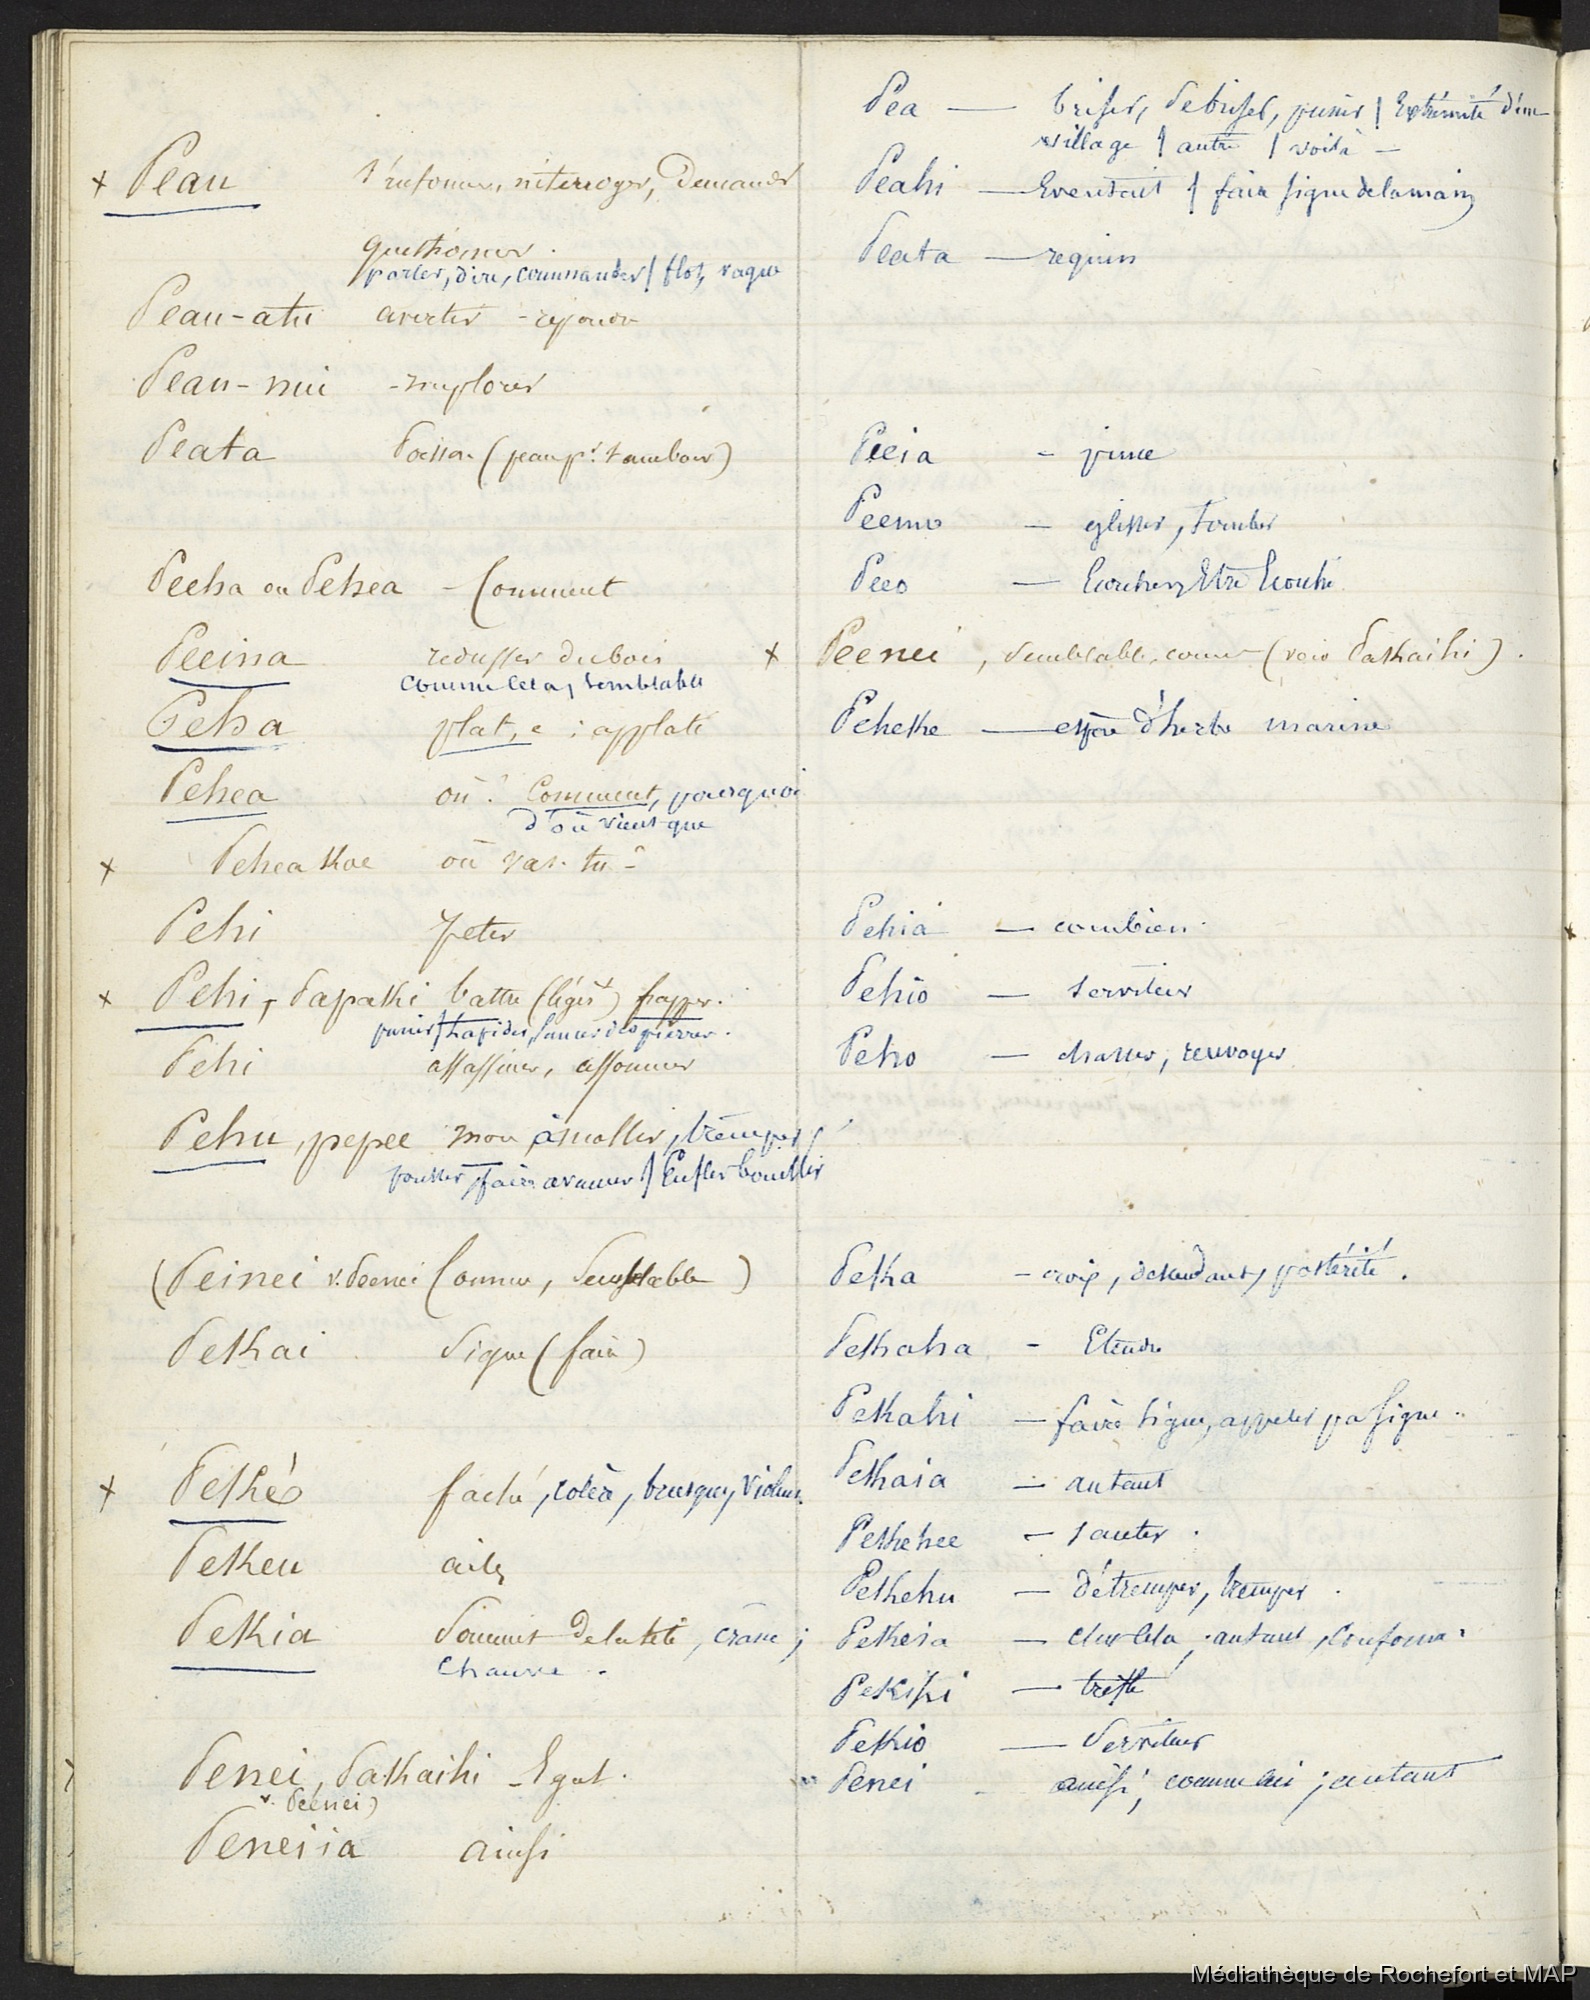 × Peau s'informer, interroger, Demander
questionner.
parler, dire, commander / flot, vague
Peau-atu avertir - repondre
Peau-mi - implorer
Peata Poisson (peau pr. tambour)
Peeha ou Pehea - Comment
Peeina du bois
comme cela, semblable
Peha plat, e ; applati
Pehea où? Comment, pourquoi
d'où vient que
× Pehea Koe où vas-tu?
Pehi Jeter
× Pehi, Papaki battre (légèrt) frapper.
punir / Lapider, lancer des pierres.
Pehi assassiner, assommer
Pehu, pepee mou, amollir, tremper,
pousser, faire avancer / Enfler bouillir
(Peinei v. Peenei Comme, Semblable)
Pekai Signe (faire)
× Peké faché, colère, brusque, violent
Pekeu aile
Pekia Sommet de la tête, crâne;
Chauve -
Penei, Pakaihi - Egal.
v. Peenei)
Peneiia ainsi
Pea — briser, se briser, punir / Extrémité d'un
village / autre / voilà -
Peahi — Eventail / faire signe de la main
Peata — requin
Peeia -
Peemo — glisser, tomber
Peeo —
× Peenei, semblable, comme (voir Pakaihi).
Peheke — espèce d'herbe marine
Pehia — combien.
Pehio — serviteur
Peho — chasser, renvoyer
Peka - croix, descendant, postérité.
Pekaha - Etendre
Pekahi — faire signe, appeler par signe.
Pekaia — autant
Pekehee — sauter.
Pekehu — détremper, tremper.
Pekeia — cela, autant, conforme
Pekihi — triste
Pekio — Serviteur
Penei - ainsi, comme ceci ; autant
Médiathèque de Rochefort et MAP